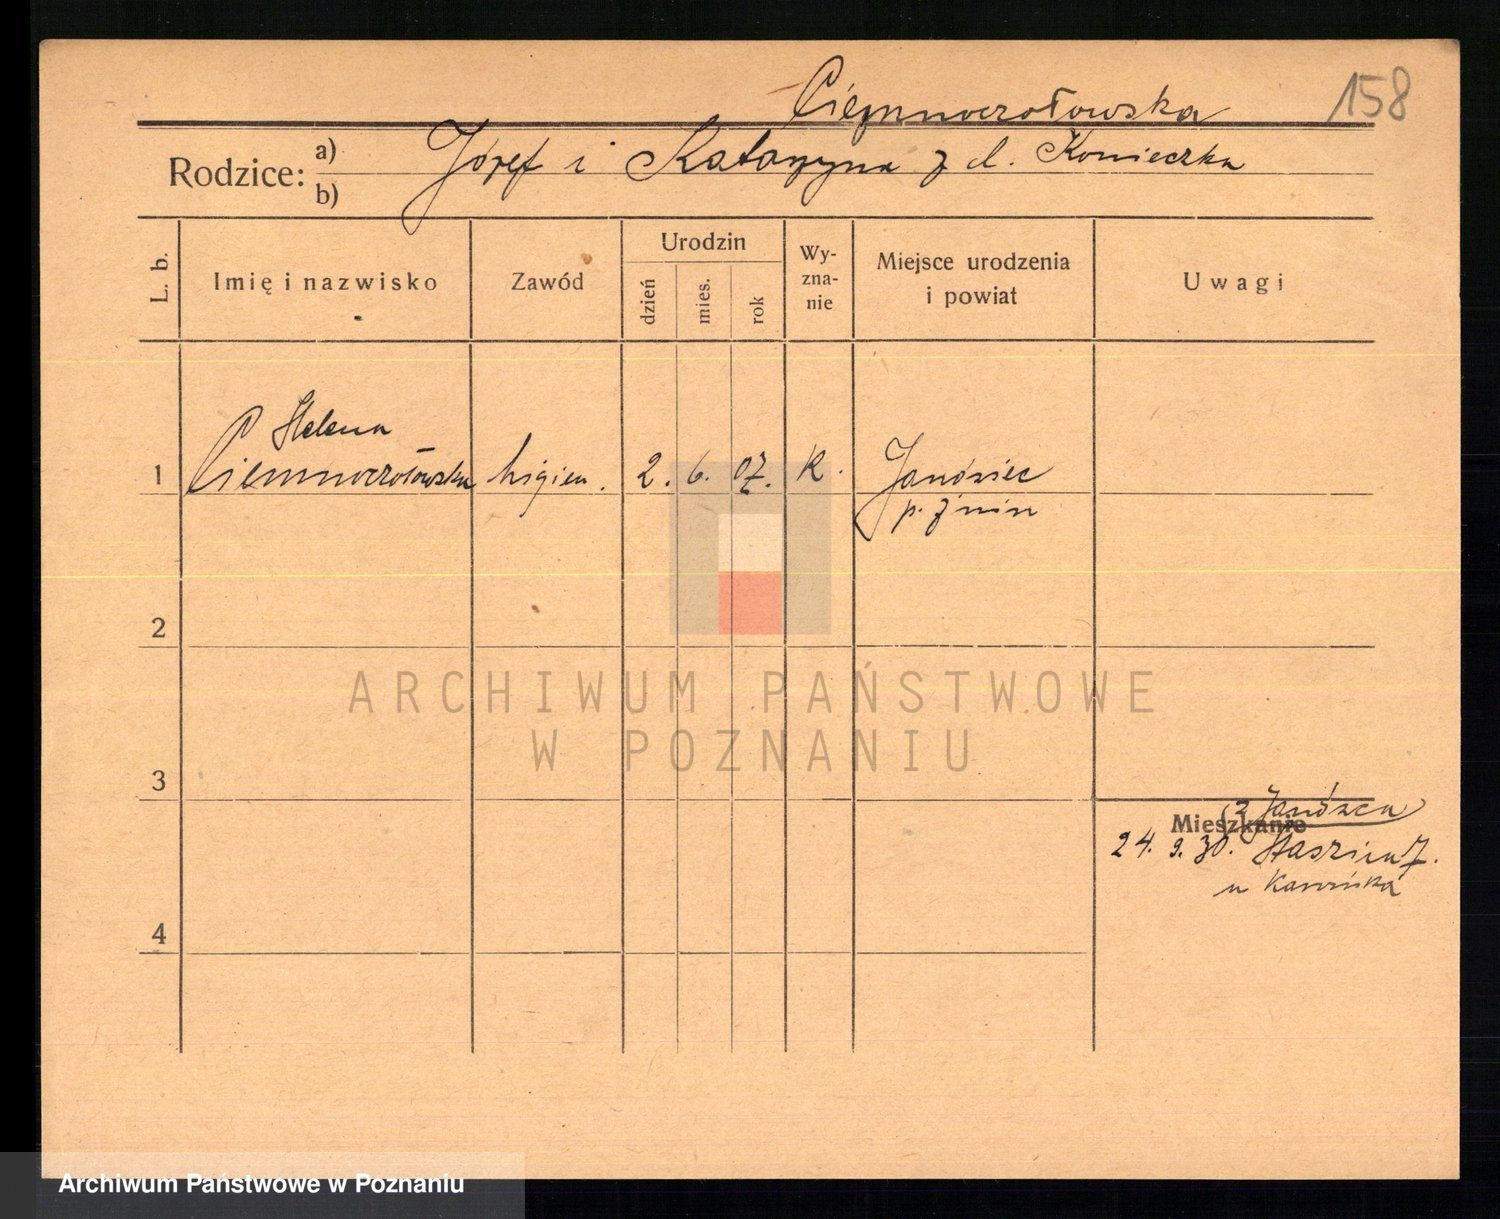 Ciemnoczołowska
158
Rodzice: a) Józef i Katarzyna z d. Konieczka
b)
L. b.
Imię i nazwisko
Zawód
Urodzin
dzień
mies.
rok
Wy-
zna-
nie
Miejsce urodzenia
i powiat
Uwagi
1 Helena
Ciemnoczołowska higien. 2. 6. 07. K. Janówiec
p. Żnin
2
ARCHIWUM PAŃSTWOWE
W POZNANIU
3
Mieszkanie
(z Janówca)
24. 9. 30. Staszica 7.
u
4
Archiwum Państwowe w Poznaniu